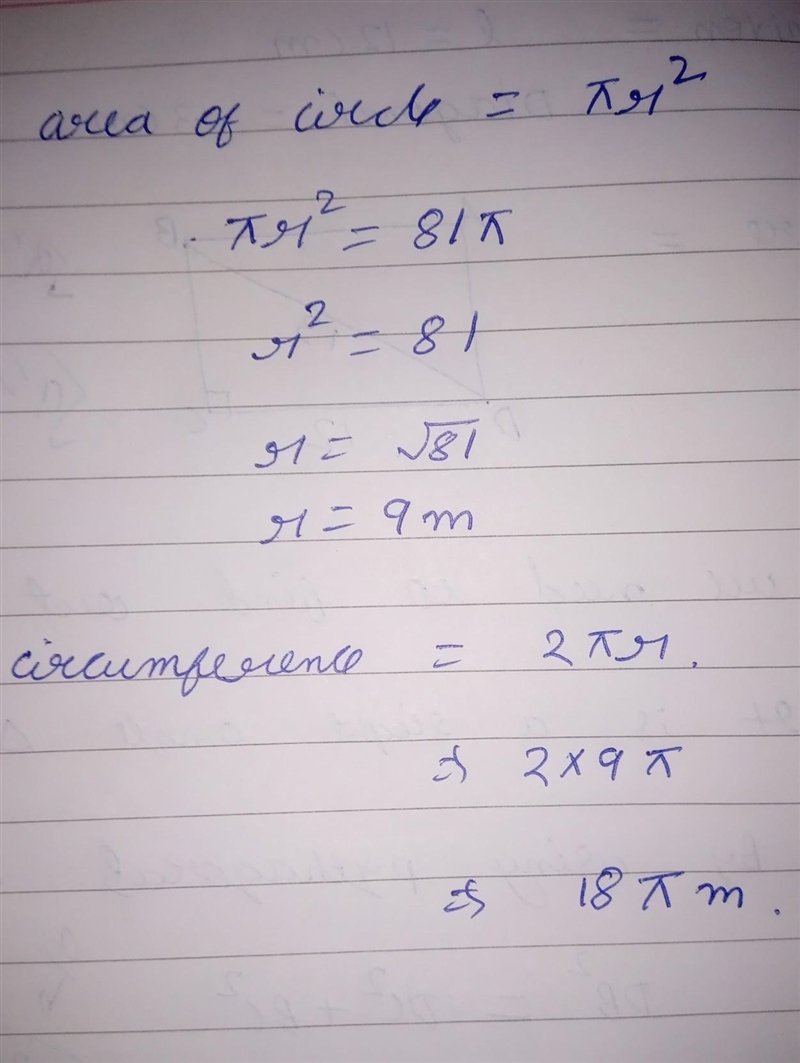 area of circle = πr²
πr² = 81π
r² = 81
r = √81
r = 9m
circumference = 2πr.
⇒ 2×9π
⇒ 18πm.